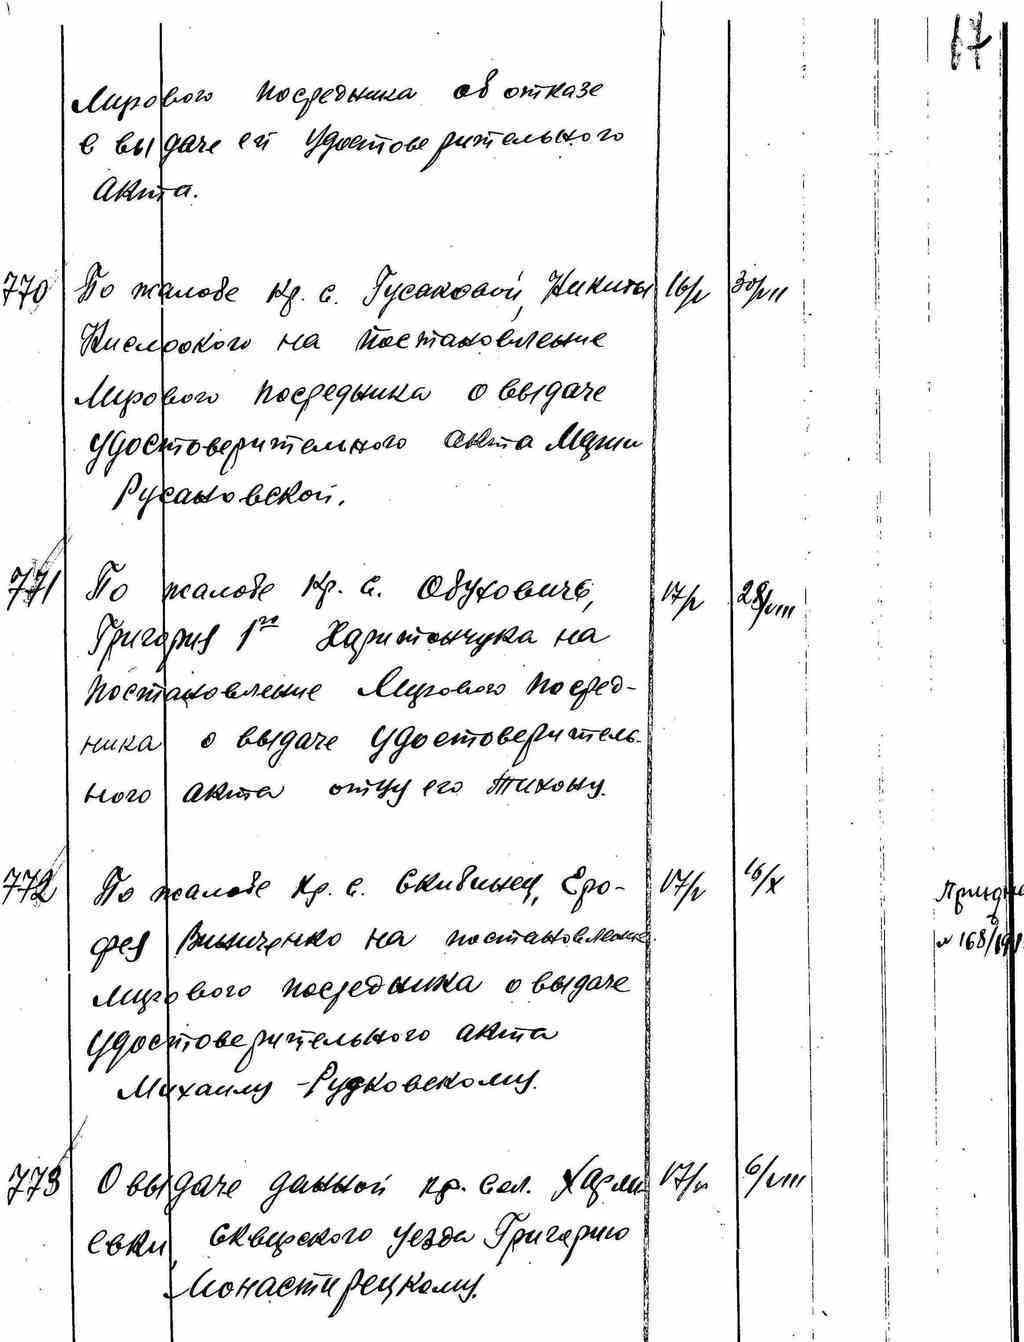 17
Мирового Посредника об отказе
в выдаче ей Удостоверительного
акта.
770 По жалобе кр. с. Гусаковой, Никиты 16/V 30/VII
Кислоокого на Постановление
Мирового Посредника о выдаче
удостоверительного акта Марии
Русановской.
771 По жалобе кр. с. Обуховичъ, 17/V 28/VIII
Григория 1го Харитончука на
Постановление Мирового Посред-
ника о выдаче Удостоверитель-
ного акта отцу его Тихону.
772 По жалобе кр. с. Скибинец, Еро- 17/V 16/X
фея Винниченко на постановление
Мирового посредника о выдаче
Удостоверительного акта № 168/
Михаилу Рудковскому.
773 О выдаче данной кр. сел. Харли- 6/VIII
евки, Сквирского уезда Григорию
Монастирецкому.